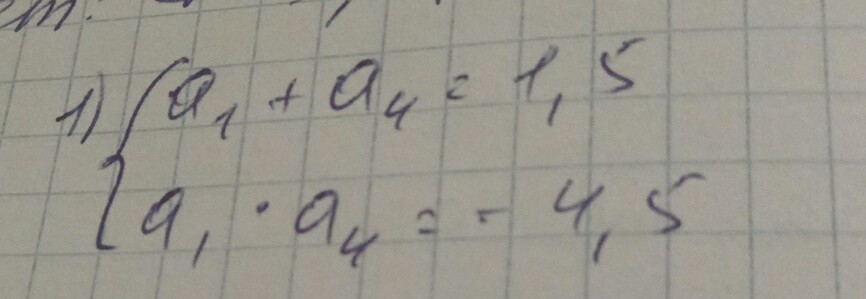 1) { a₁ + a₄ = 1,5
a₁ · a₄ = - 4,5